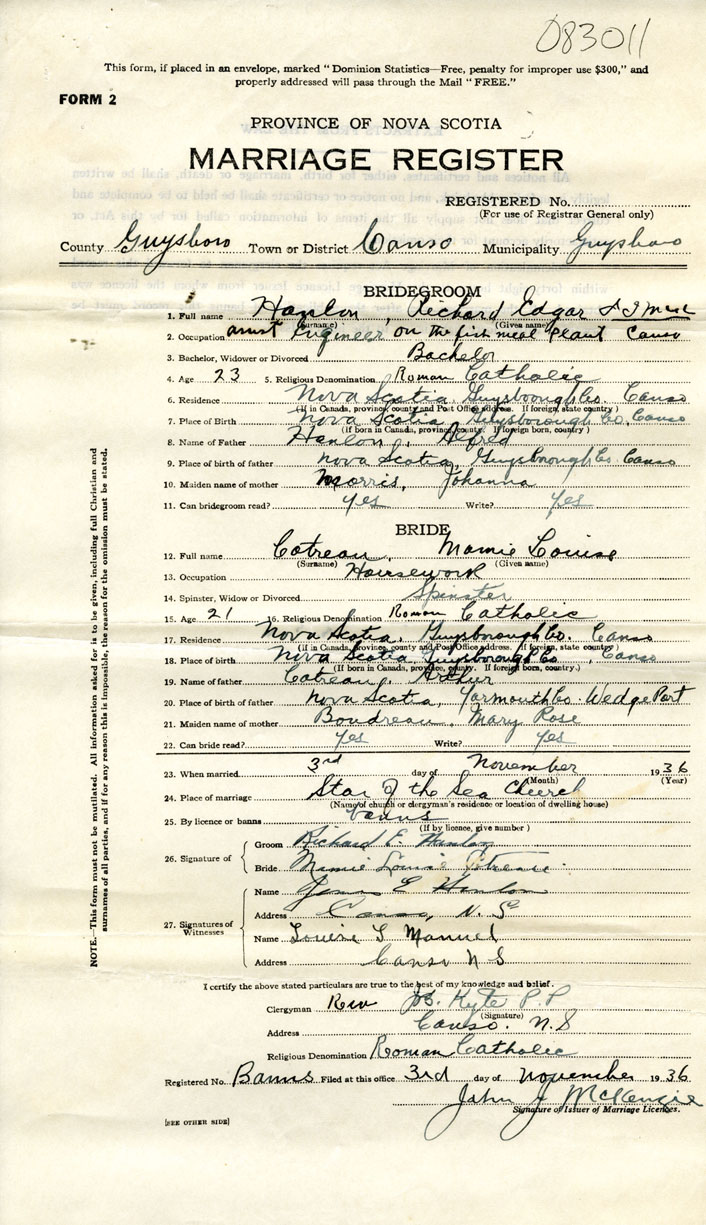 083011
This form, if placed in an envelope, marked "Dominion Statistics—Free, penalty for improper use $300," and
properly addressed will pass through the Mail "FREE."
FORM 2
PROVINCE OF NOVA SCOTIA
MARRIAGE REGISTER
REGISTERED No.
(For use of Registrar General only)
County Guysboro Town or District Canso Municipality Guysboro
BRIDEGROOM
1. Full name Hanlon, Richard Edgar
(Surname) (Given name)
2. Occupation Engineer on the fish meal Plant Canso
3. Bachelor, Widower or Divorced Bachelor
4. Age 23 5. Religious Denomination Roman Catholic
6. Residence Nova Scotia Guysborough Co. Canso
(If in Canada, province, county and Post Office address. If foreign, state country)
7. Place of Birth Nova Scotia Guysborough Co. Canso
(If born in Canada, province, county. If foreign born, country.)
8. Name of Father Hanlon, Alfred
9. Place of birth of father Nova Scotia, Guysborough Co Canso
10. Maiden name of mother Morris, Johanna
11. Can bridegroom read? yes Write? yes
BRIDE
12. Full name Cotreau, Mamie Louise
(Surname) (Given name)
13. Occupation Housework
14. Spinster, Widow or Divorced Spinster
15. Age 21 16. Religious Denomination Roman Catholic
17. Residence Nova Scotia. Guysborough Co. Canso
(If in Canada, province, county and Post Office address. If foreign, state country)
18. Place of birth Nova Scotia, Guysborough Co, Canso
(If born in Canada, province, county. If foreign born, country.)
19. Name of father Cotreau, Arthur
20. Place of birth of father Nova Scotia, Yarmouth Co. Wedge Port
21. Maiden name of mother Boudreau, Mary Rose
22. Can bride read? yes Write? yes
23. When married 3rd day of November 1936
(Month) (Year)
24. Place of marriage Star of the Sea Church
(Name of church or clergyman's residence or location of dwelling house)
25. By licence or banns banns
(If by licence, give number)
26. Signature of
Groom Richard E. Hanlon
Bride Mamie Louise Cotreau
27. Signatures of Witnesses
Name E Hanlon
Address Canso, N. S
Name Louise S Manuel
Address Canso N S
I certify the above stated particulars are true to the best of my knowledge and belief.
Clergyman Rev Jos. Kyte P. P
(Signature)
Address Canso. N. S
Religious Denomination Roman Catholic
Registered No. Banns Filed at this office 3rd day of November 1936
John J McKenzie
Signature of Issuer of Marriage Licences.
[SEE OTHER SIDE]
NOTE.—This form must not be mutilated. All information asked for is to be given, including full Christian and
surnames of all parties, and if for any reason this is impossible, the reason for the omission must be stated.